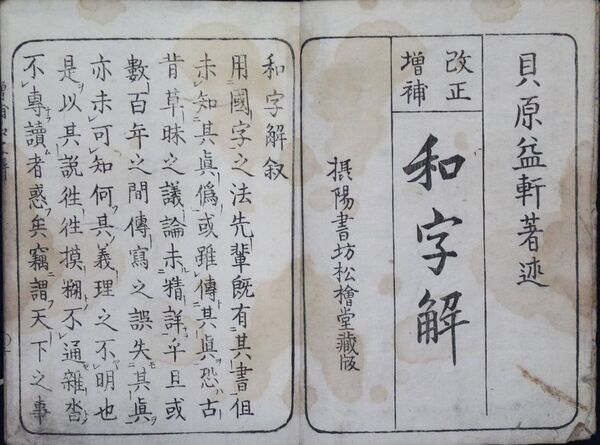 貝原益軒著述
改正
増補
和字解
摂陽書坊松檜堂蔵版
和字解叙
用國字之法先輩既有其書但
未知其眞僞或雖傳其眞恐古
昔草昧之議論未精詳乎且或
數百年之間傳寫之誤失其眞
亦未可知何其義理之不明也
是以其説徃徃摸糊不通雜沓
不專讀者惑矣竊謂天下之事